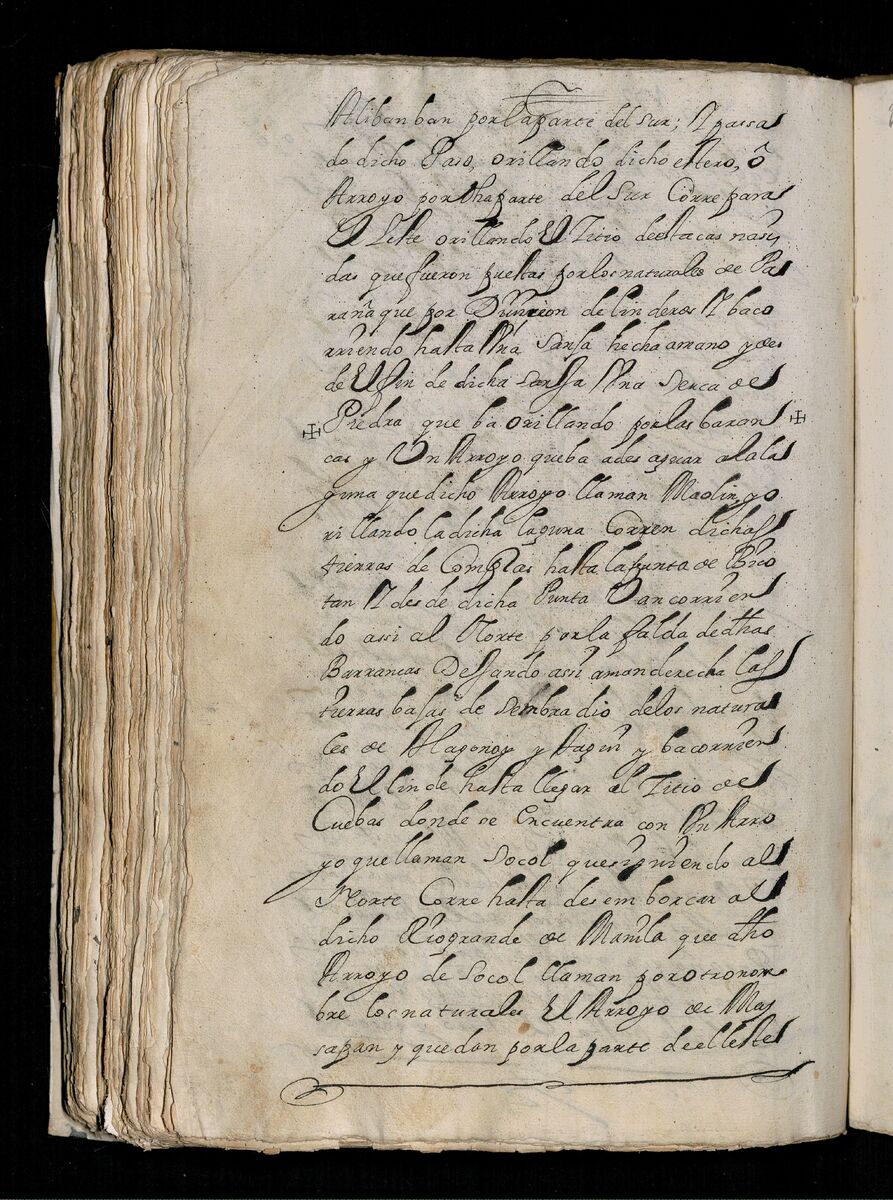 Alibanban por la parte del sur; Y passa
do dicho Paso, orillando dicho estero, ô
Arroyo por dha parte del Sur Corre para
El Leste orillando El Titio de estacas nasi
das que fueron puestas por los naturales de Pa
raña que por Divicion de linderos Y baco
rriendo hasta Vna Sansa hecha amano y des
de El fin de dicha sansa Vna Serca de
Piedra que ba orillando por las baran
cas y Vn Arroyo que ba a des aguar a la la
guna que dicho Arroyo llaman Maolin, yo
rillando la dicha laguna Corren dichas
tierras de Compas hasta la punta de Bico
tan Y desde dicha Punta Van corrien
do assi al Norte por la falda de dhas
Barrancas Dessando assi a man derecha las
tierras bajas de sembradio de los natura
les de Hagonoy y Tagui y ba corrien
do El linde hasta llegar al Titio de
Cuebas donde se Encuentra con Vn Arro
yo que llaman Socol que siguiendo al
Norte Corre hasta desemborcar al
dicho Rio grande de Manila que dho
Arroyo de Socol llaman por otro nom
bre los naturales El Arroyo de Mas
sapan y quedan por la parte de el leste